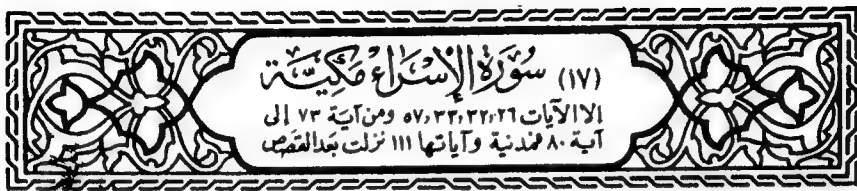 (١٧) سُورَةُ الإِسْرَاءِ مَكِيَّة
الا الآيات ٢٦،٣٢،٣٣،٥٧ ومن آية ٧٣ إلى
آية ٨٠ فمدنية وآياتها ١١١ نزلت بعد القصص